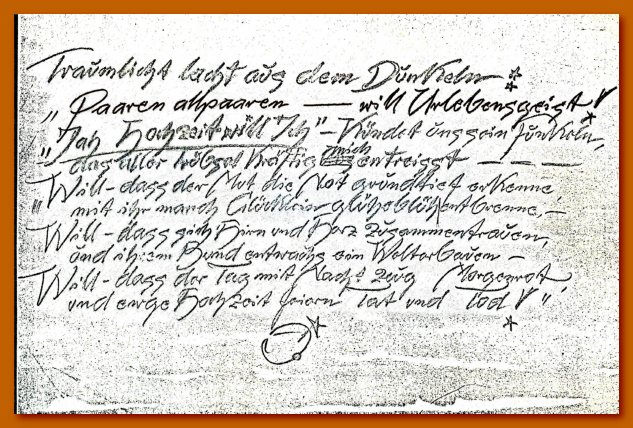 Traumlicht lacht aus dem Dunkeln
„Paaren allpaaren — will Urlebensgeist!
„Jah Hochzeit will Ich" — kündet uns sein Funkeln,
das aller Trübsal kräftig mich entreisst — — —
„Will - dass der Mut die Not grundtief erkenne
mit ihr manch Glücklein glüheblüh entbrenne, —
Will - dass sich Hirn und Herz zusammentrauen,
und ihrem Bund entwachs ein Welterbauen —
Will - dass der Tag mit Nacht zeug Morgenrot,
und ewge Hochzeit feiern Tat und Tod!",